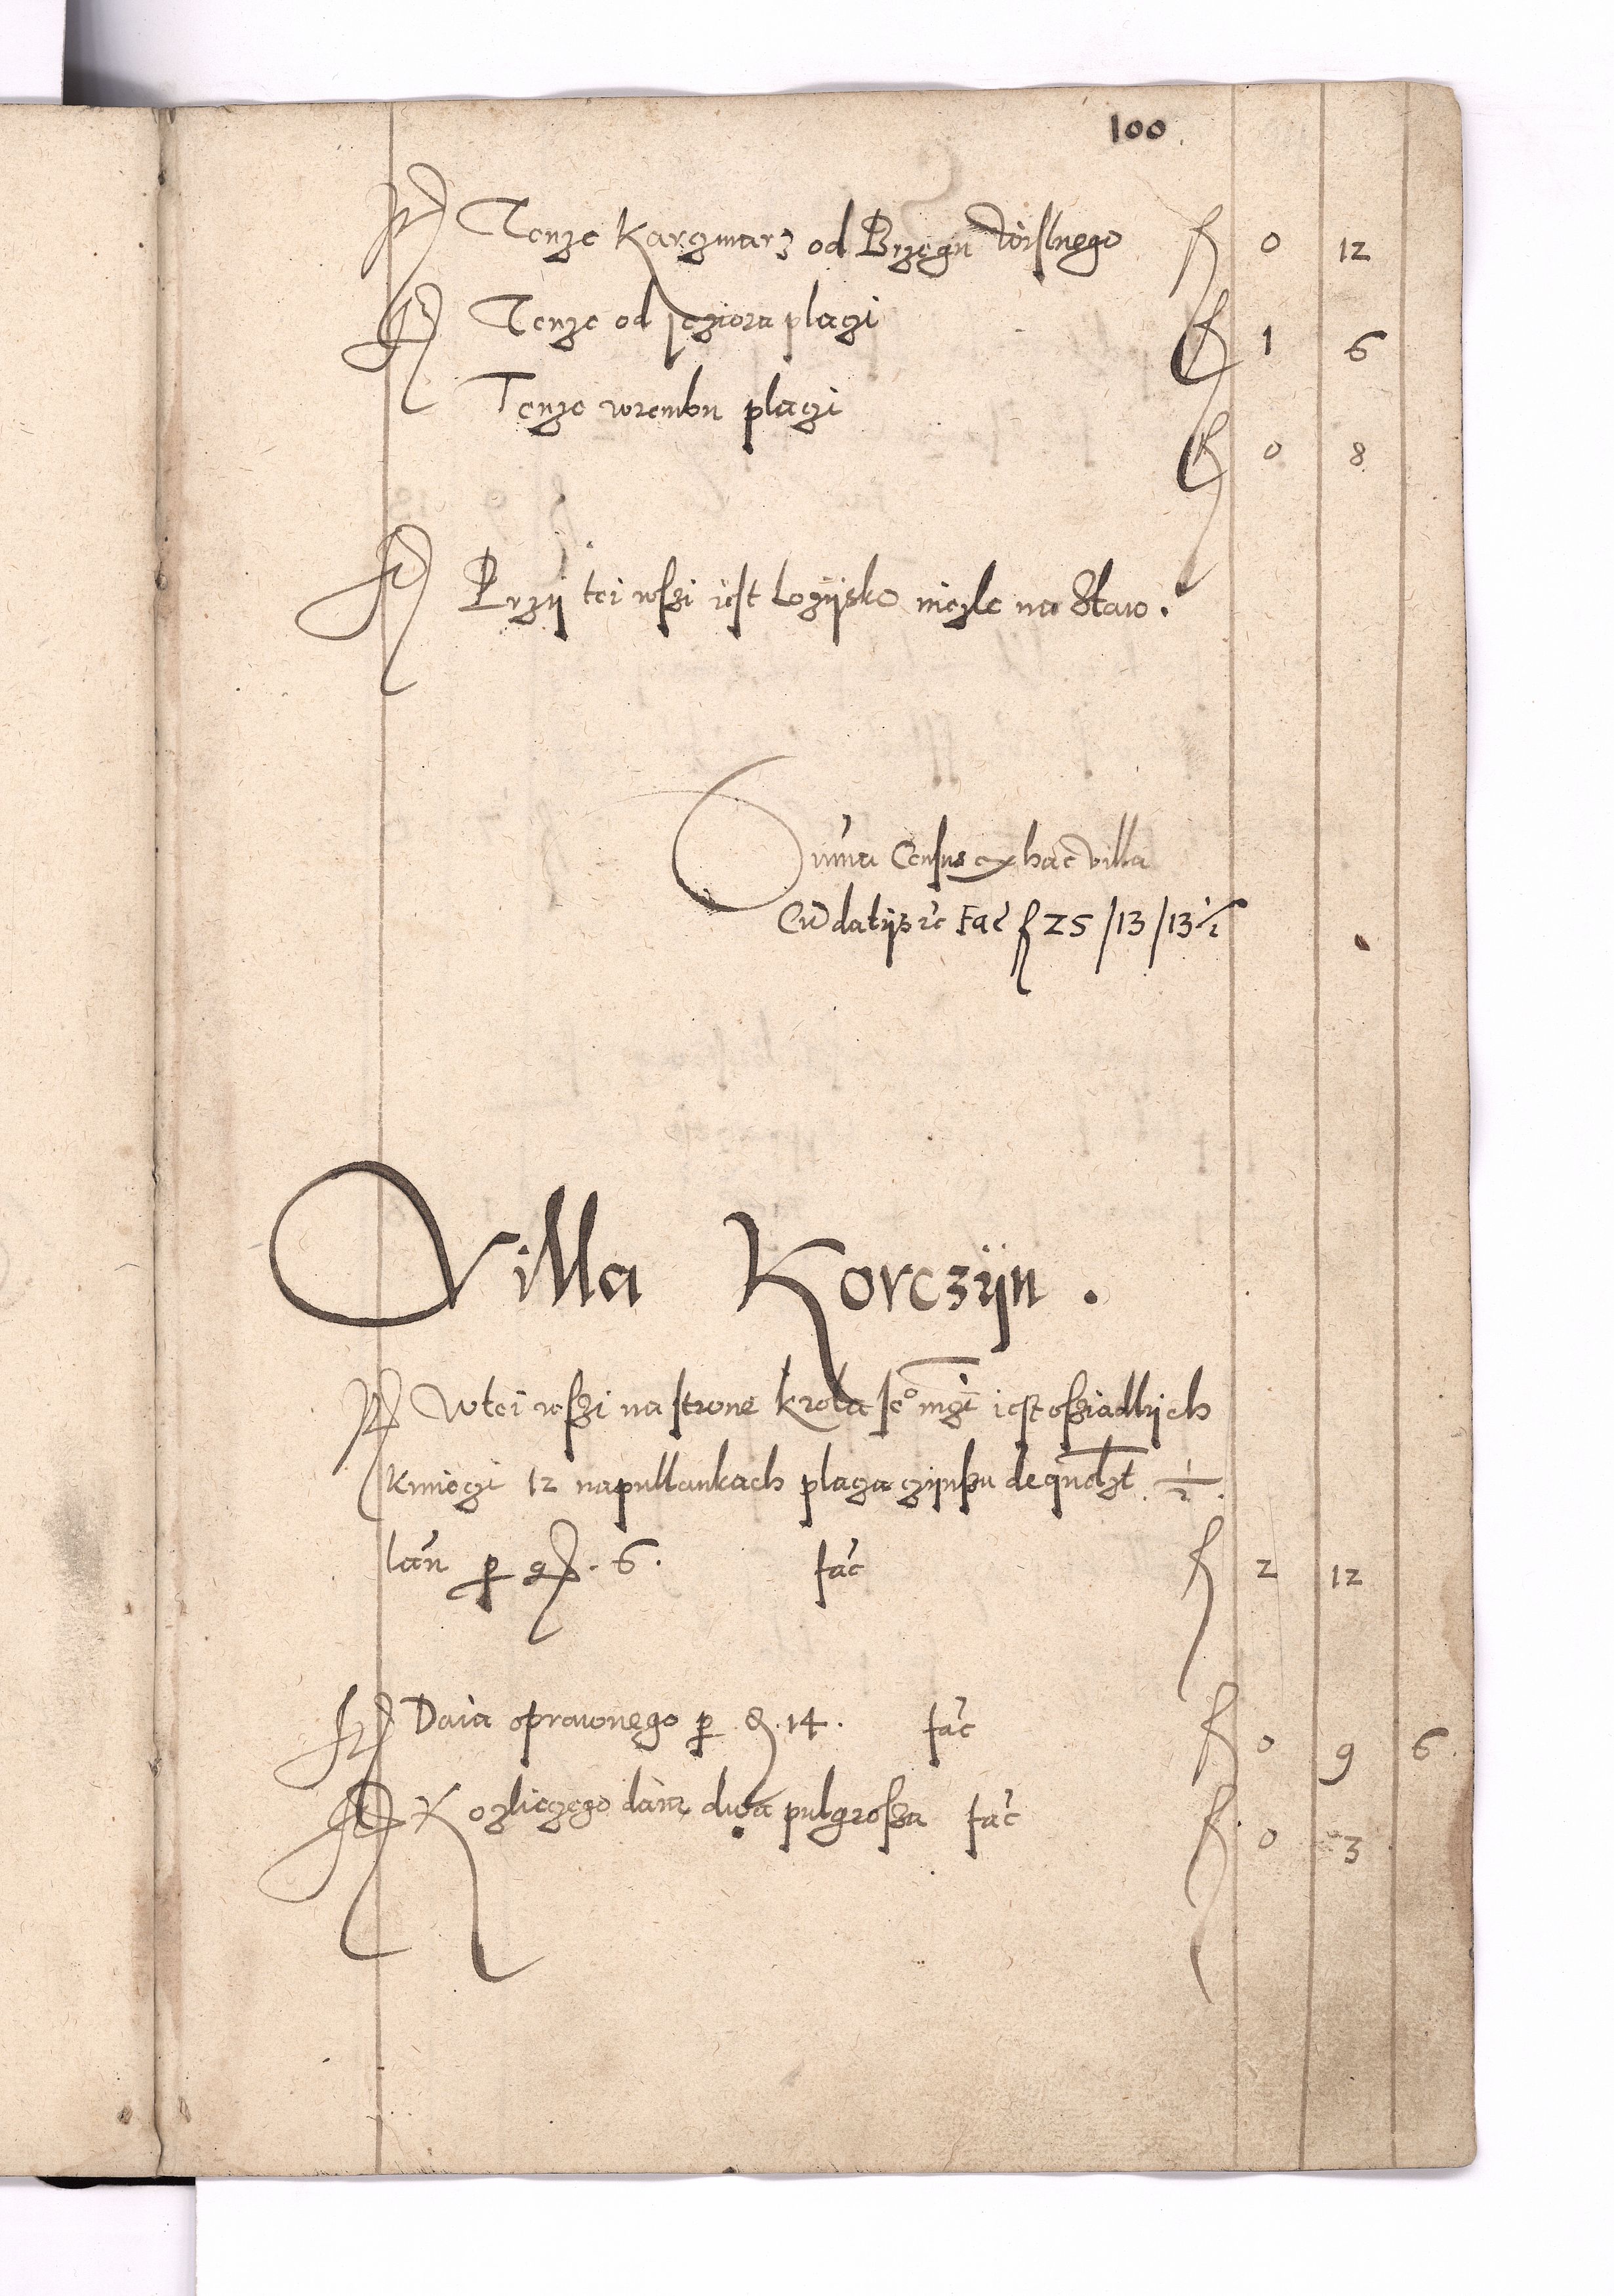 100
Tenze Karczmarz od Brzegu Wislnego f 0 12
Tenze od Jeziora placzi f 1 6
Tenze wrembu placzi
f 0 8
Przÿ tei wszi iest Lozÿsko niezle na Staw.
Suma Census ex hac villa
Cu datÿs rc fac f 25 / 13 / 13 1/2
Villa Korczÿn.
W tei wszi na strone krola Jeo mczi iest osziadlÿch
kmieczi 12 na pullankach placza czÿnszu de quolzt 1/2
lan per g. 6. fac f 2 12
Daia oprawnego per d. 14. fac f 0 9 6.
Kozliczego daia dwa pulgrosza fac f 0 3